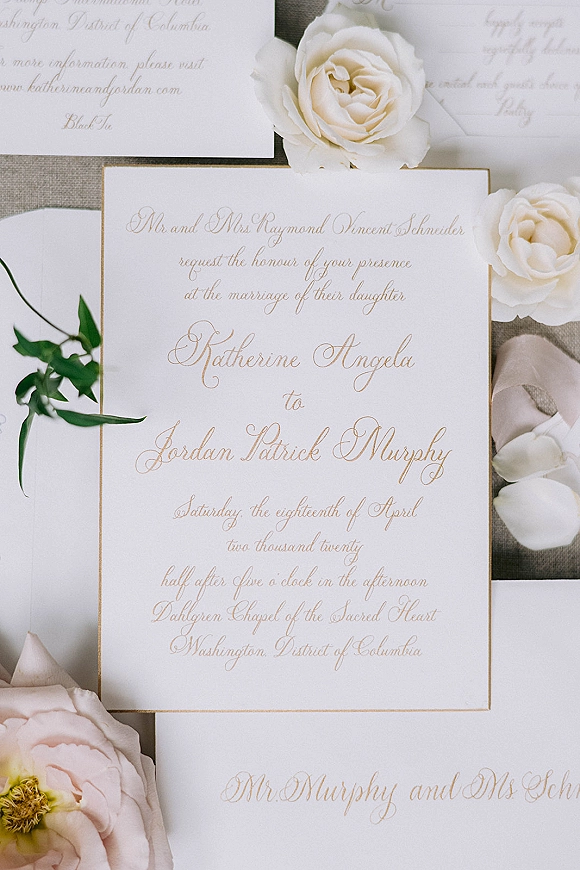 International Hotel
Washington District of Columbia
more information please visit
www.katherineandjordan.com
Black Tie
M
happily accepts
regretfully declines
initial each guest's choice
Poultry
Mr. and Mrs Raymond Vincent Schneider
request the honour of your presence
at the marriage of their daughter
Katherine Angela
to
Jordan Patrick Murphy
Saturday, the eighteenth of April
two thousand twenty
half after five o'clock in the afternoon
Dahlgren Chapel of the Sacred Heart
Washington District of Columbia
Mr. Murphy and Ms Schn